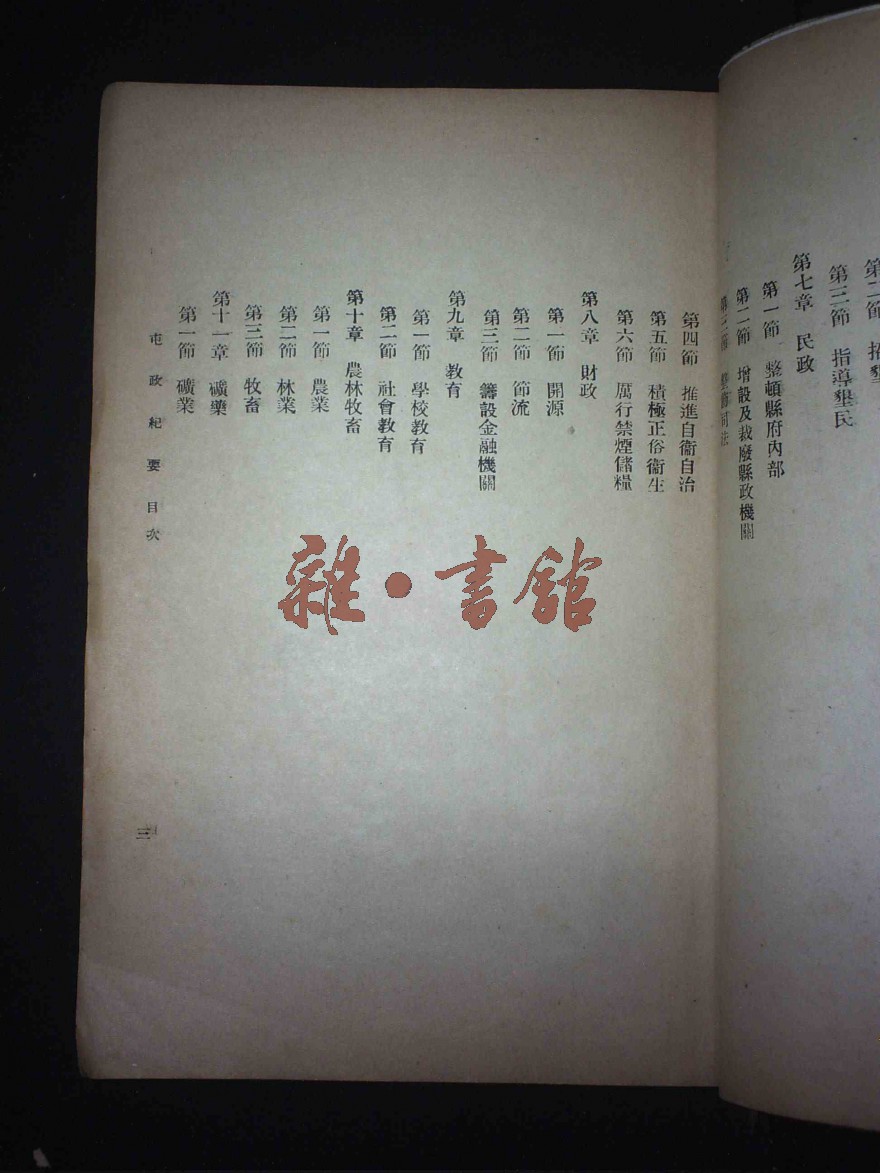 第三節 指導墾民
第七章 民政
第一節 整頓縣府內部
第二節 增設及裁廢縣政機關
第四節 推進自衞自治
第五節 積極正俗衞生
第六節 厲行禁煙儲糧
第八章 財政
第一節 開源
第二節 節流
第三節 籌設金融機關
第九章 教育
第一節 學校教育
第二節 社會教育
第十章 農林牧畜
第一節 農業
第二節 林業
第三節 牧畜
第十一章 礦藥
第一節 礦業
屯政紀要 目次
三
雜·書館